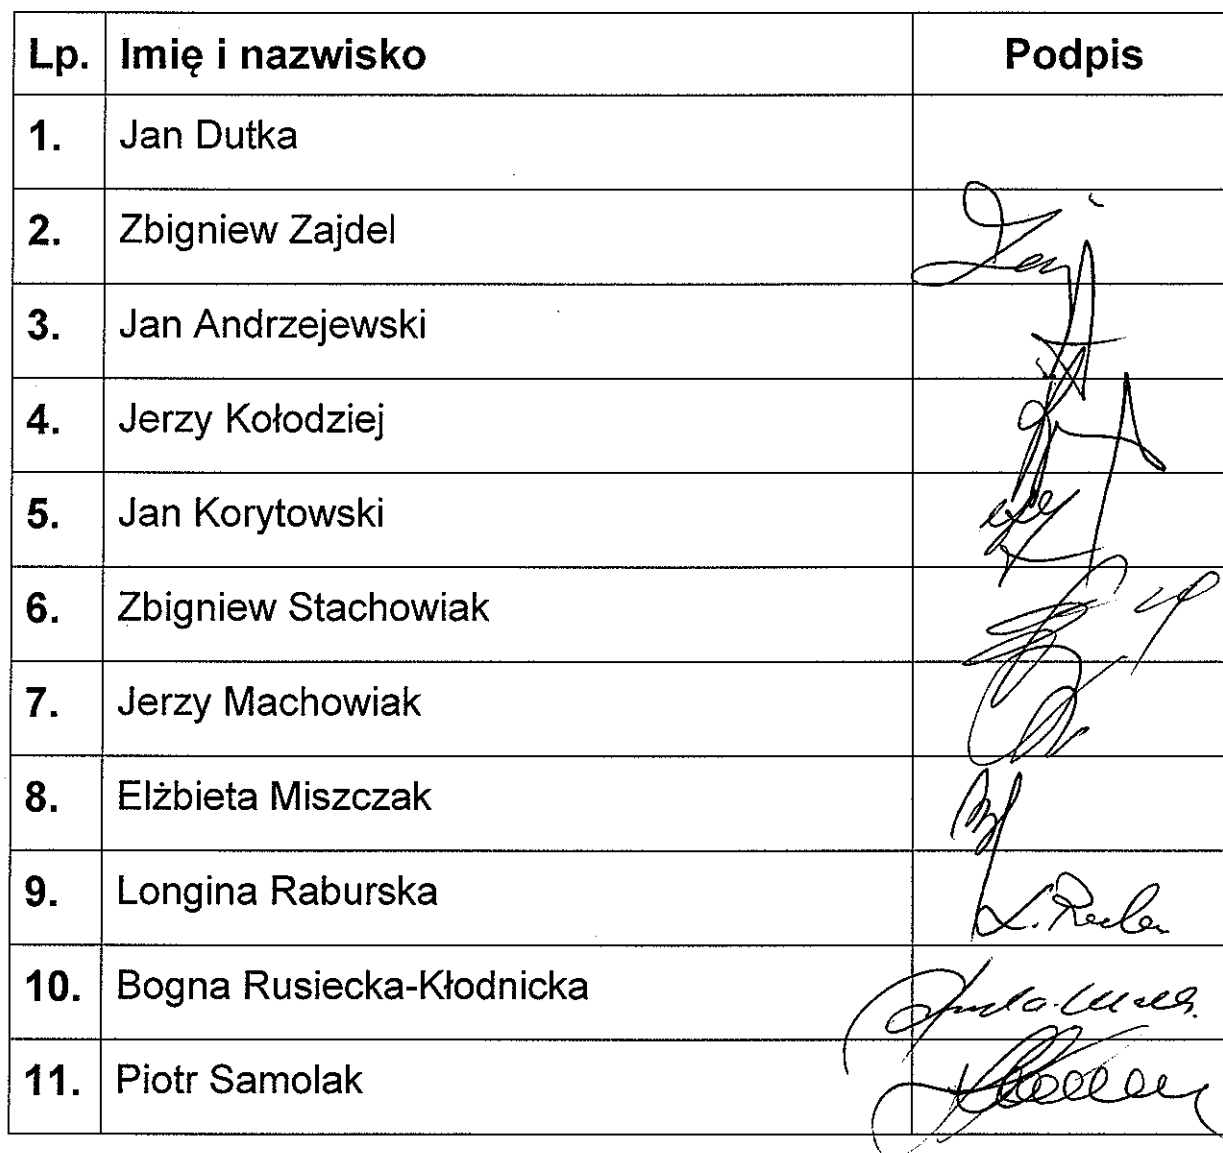 Lp. Imię i nazwisko Podpis
1. Jan Dutka
2. Zbigniew Zajdel
3. Jan Andrzejewski
4. Jerzy Kołodziej
5. Jan Korytowski
6. Zbigniew Stachowiak
7. Jerzy Machowiak
8. Elżbieta Miszczak
9. Longina Raburska
10. Bogna Rusiecka-Kłodnicka
11. Piotr Samolak